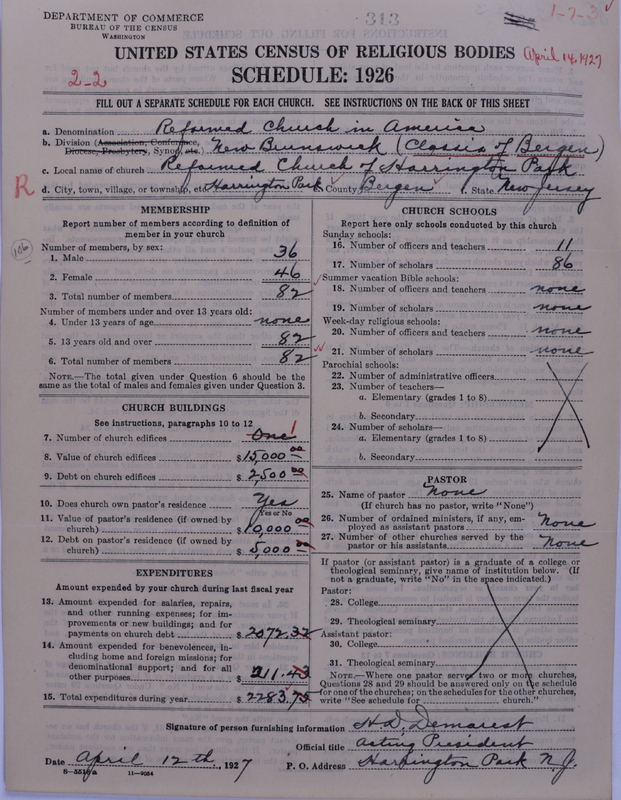 DEPARTMENT OF COMMERCE
BUREAU OF THE CENSUS
WASHINGTON
313
1-7-3
UNITED STATES CENSUS OF RELIGIOUS BODIES
April 14, 1927
2-2
SCHEDULE: 1926
FILL OUT A SEPARATE SCHEDULE FOR EACH CHURCH. SEE INSTRUCTIONS ON THE BACK OF THIS SHEET
a. Denomination Reformed Church in America
b. Division (Association, Conference, Diocese, Presbytery, Synod, etc.) New Brunswick (Classis of Bergen)
c. Local name of church Reformed Church of Harrington Park
R
d. City, town, village, or township, etc. Harrington Park County Bergen State New Jersey
MEMBERSHIP
Report number of members according to definition of
member in your church
106
Number of members, by sex:
1. Male 36
2. Female 46
3. Total number of members 82
Number of members under and over 13 years old:
4. Under 13 years of age none
5. 13 years old and over 82
6. Total number of members 82
NOTE.—The total given under Question 6 should be the
same as the total of males and females given under Question 3.
CHURCH BUILDINGS
See instructions, paragraphs 10 to 12
7. Number of church edifices One 1
8. Value of church edifices $15,000 00
9. Debt on church edifices $2,500 00
10. Does church own pastor's residence Yes
Yes or No
11. Value of pastor's residence (if owned by
church) $10,000 00
12. Debt on pastor's residence (if owned by
church) $5,000 00
EXPENDITURES
Amount expended by your church during last fiscal year
13. Amount expended for salaries, repairs,
and other running expenses; for im-
provements or new buildings; and for
payments on church debt $2072.32
14. Amount expended for benevolences, in-
cluding home and foreign missions; for
denominational support; and for all
other purposes $211.43
15. Total expenditures during year $2283.75
CHURCH SCHOOLS
Report here only schools conducted by this church
Sunday schools:
16. Number of officers and teachers 11
17. Number of scholars 86
Summer vacation Bible schools:
18. Number of officers and teachers none
19. Number of scholars none
Week-day religious schools:
20. Number of officers and teachers none
21. Number of scholars none
Parochial schools:
22. Number of administrative officers
23. Number of teachers—
a. Elementary (grades 1 to 8)
b. Secondary
24. Number of scholars—
a. Elementary (grades 1 to 8)
b. Secondary
PASTOR
25. Name of pastor None
(If church has no pastor, write "None")
26. Number of ordained ministers, if any, em-
ployed as assistant pastors None
27. Number of other churches served by the
pastor or his assistants None
If pastor (or assistant pastor) is a graduate of a college or
theological seminary, give name of institution below. (If
not a graduate, write "No" in the space indicated.)
Pastor:
28. College
29. Theological seminary
Assistant pastor:
30. College
31. Theological seminary
NOTE.—Where one pastor serves two or more churches,
Questions 28 and 29 should be answered only on the schedule
for one of the churches; on the schedules for the other churches,
write "See schedule for church."
Signature of person furnishing information H. D. Demarest
Official title Acting President
Date April 12th, 1927 P. O. Address Harrington Park N.J.
8-5516a 11-9054